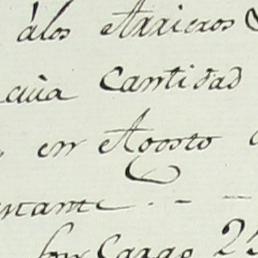 álos Arrieros
cuia Cantidad
en Agosto
stante
son Cargo 2